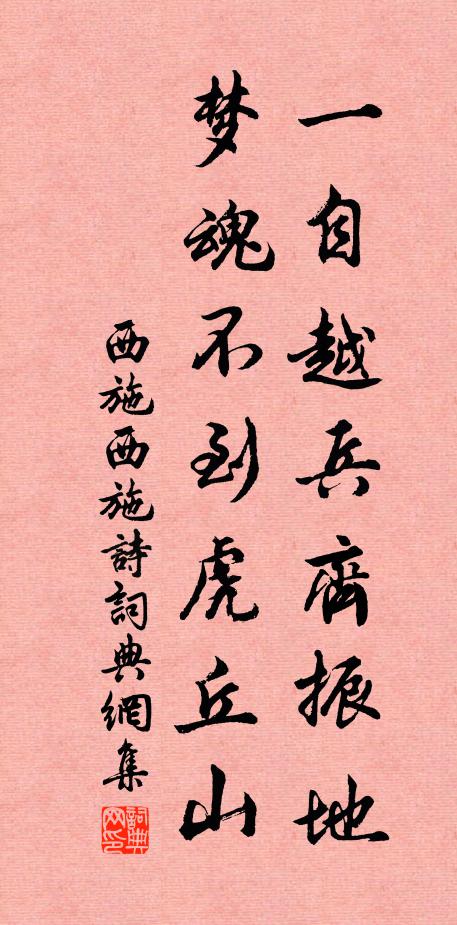 一自越兵齊振地
梦魂不到虎丘山
西施西施詩詞典網集
詞典网印